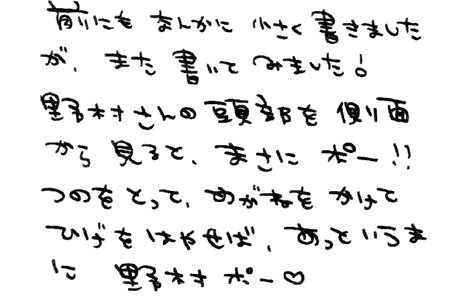 前にもなんかに小さく書きました
が、また書いてみました!
野村さんの頭部を側面
から見ると、まさにポー!!
つのをとって、めがねをかけて
ひげをはやせば、あっというま
に 野村ポー♡